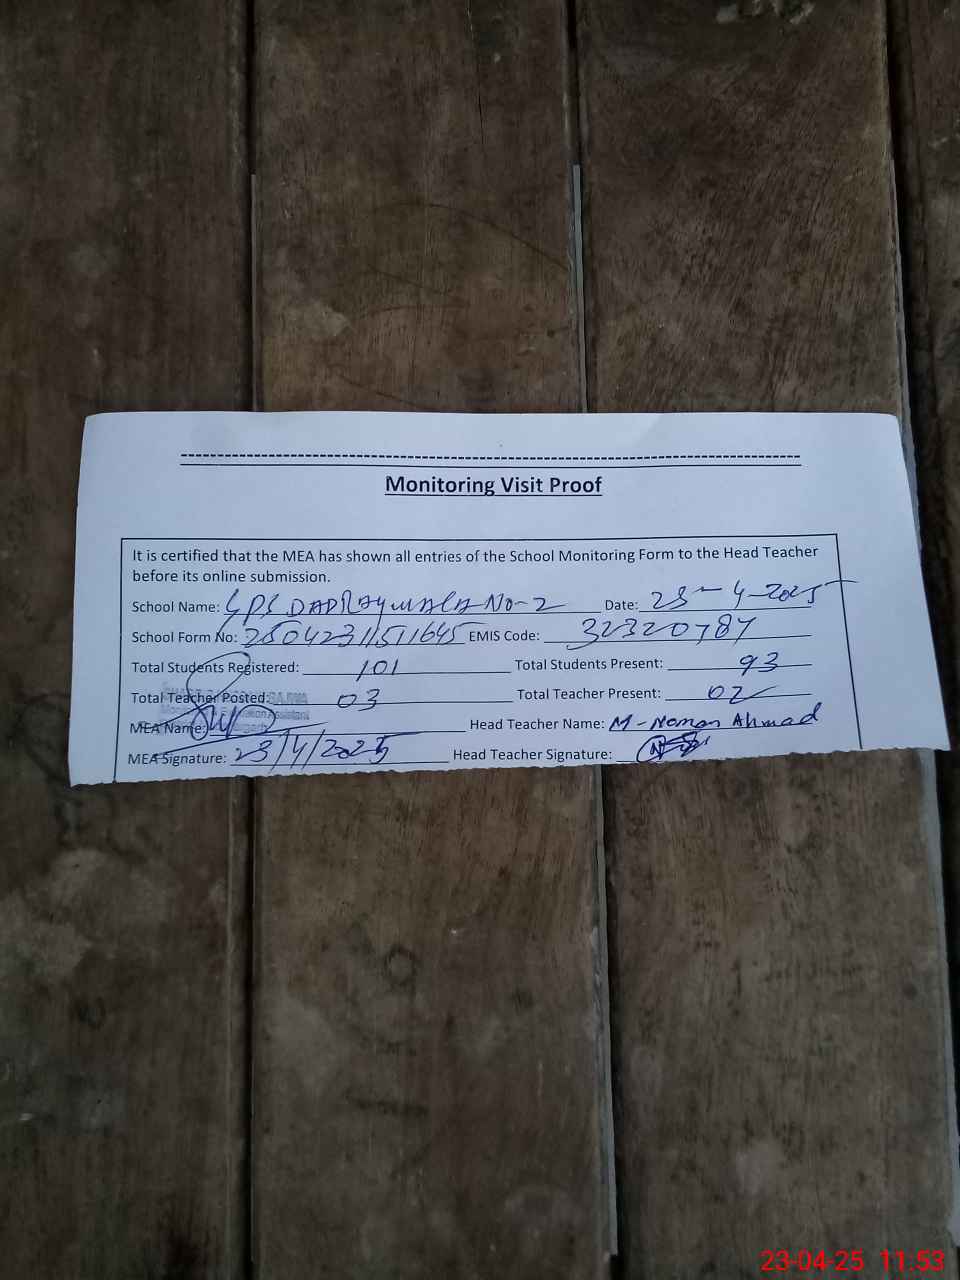 Monitoring Visit Proof
It is certified that the MEA has shown all entries of the School Monitoring Form to the Head Teacher
before its online submission.
School Name: GPS DADRAYWALA No-2 Date: 23-4-2025
School Form No: EMIS Code: 32320787
Total Students Registered: 101 Total Students Present: 93
Total Teacher Posted: 03 Total Teacher Present: 02
MEA Name: Head Teacher Name: M-Noman Ahmad
MEA Signature: 23/4/2025 Head Teacher Signature:
23-04-25 11:53